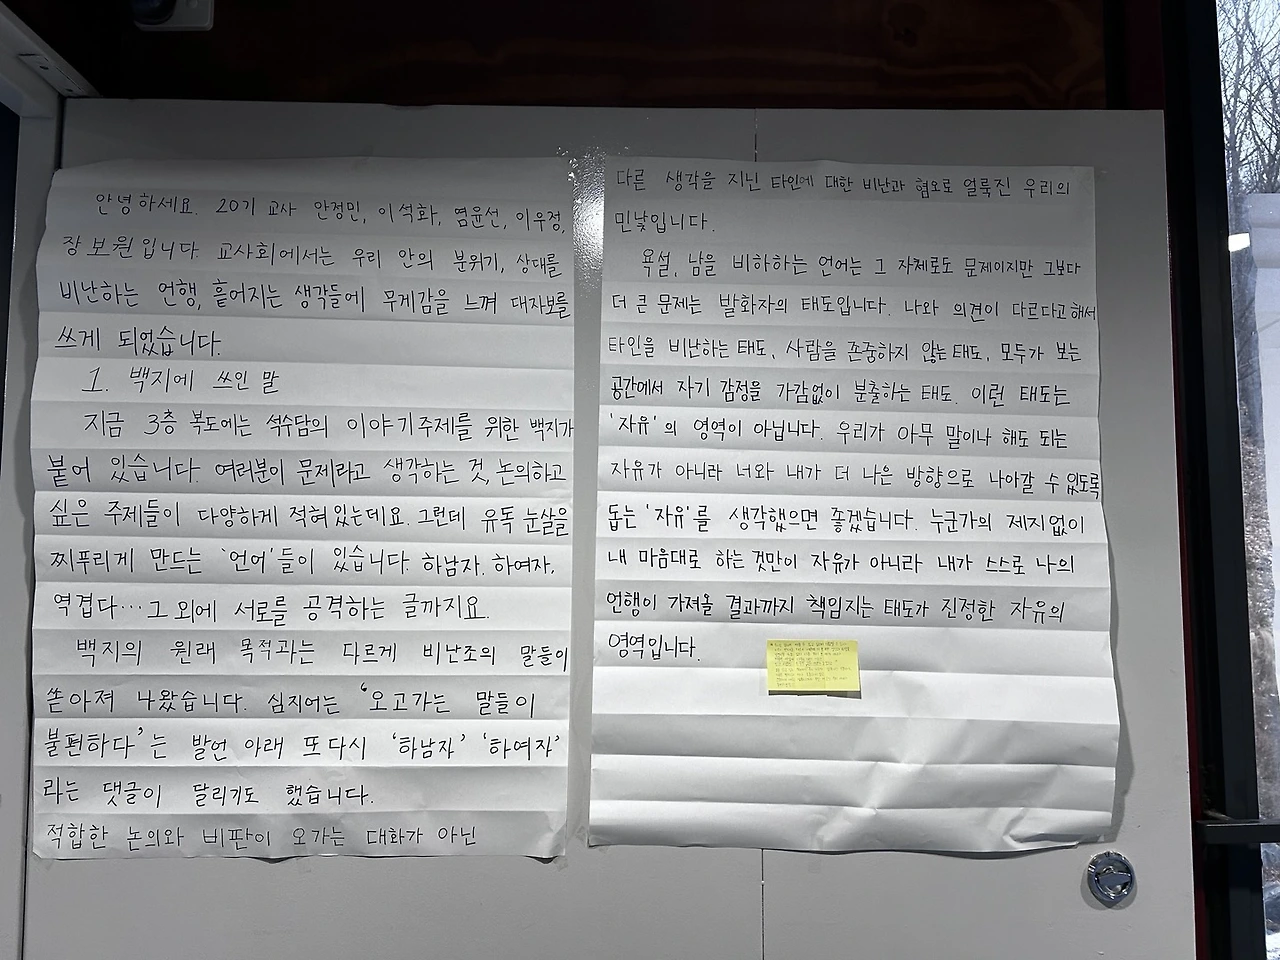 안녕하세요. 20기 교사 안정민, 이석화, 염윤선, 이우정,
장보원입니다. 교사회에서는 우리 안의 분위기, 상대를
비난하는 언행, 흩어지는 생각들에 무게감을 느껴 대자보를
쓰게 되었습니다.
1. 백지에 쓰인 말
지금 3층 복도에는 석수담의 이야기주제를 위한 백지가
붙어 있습니다. 여러분이 문제라고 생각하는 것, 논의하고
싶은 주제들이 다양하게 적혀있는데요. 그런데 유독 눈살을
찌푸리게 만드는 '언어'들이 있습니다. 하남자. 하여자.
역겹다… 그 외에 서로를 공격하는 글까지요.
백지의 원래 목적과는 다르게 비난조의 말들이
쏟아져 나왔습니다. 심지어는 '오고가는 말들이
불편하다'는 발언 아래 또다시 '하남자' '하여자'
라는 댓글이 달리기도 했습니다.
적합한 논의와 비판이 오가는 대화가 아닌
다른 생각을 지닌 타인에 대한 비난과 혐오로 얼룩진 우리의
민낯입니다.
욕설, 남을 비하하는 언어는 그 자체로도 문제이지만 그보다
더 큰 문제는 발화자의 태도입니다. 나와 의견이 다르다고 해서
타인을 비난하는 태도, 사람을 존중하지 않는 태도, 모두가 보는
공간에서 자기 감정을 가감없이 분출하는 태도. 이런 태도는
'자유'의 영역이 아닙니다. 우리가 아무 말이나 해도 되는
자유가 아니라 너와 내가 더 나은 방향으로 나아갈 수 있도록
돕는 '자유'를 생각했으면 좋겠습니다. 누군가의 제지없이
내 마음대로 하는 것만이 자유가 아니라 내가 스스로 나의
언행이 가져올 결과까지 책임지는 태도가 진정한 자유의
영역입니다.